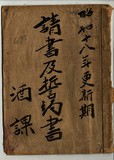 昭和十八年更新期
請書及誓約書
酒課